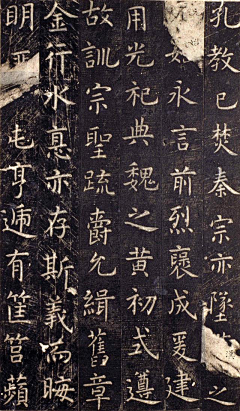 孔教已焚秦宗亦墜之
始永言前烈褒成爰建
用光祀典魏之黄初式遵
故訓宗聖疏爵允緝舊章
金行水悳亦存斯義而晦
明屯亨遞有筐筥蘋